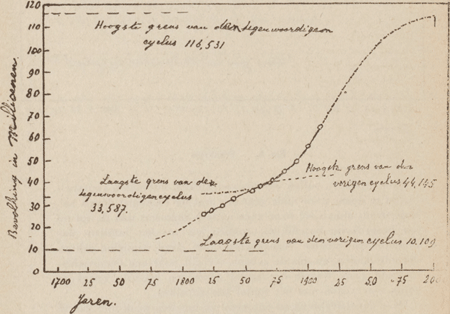 120
110
100
90
80
70
60
50
40
30
20
10
0
Bevolking in Millioenen
Hoogste grens van den tegenwoordigen
cyclus 116,531
Laagste grens van den
tegenwoordigen cyclus
33,587.
Hoogste grens van den
vorigen cyclus 44,145
Laagste grens van den vorigen cyclus 10,109
1700 25 50 75 1800 25 50 75 1900 25 50 75 200
Jaren.